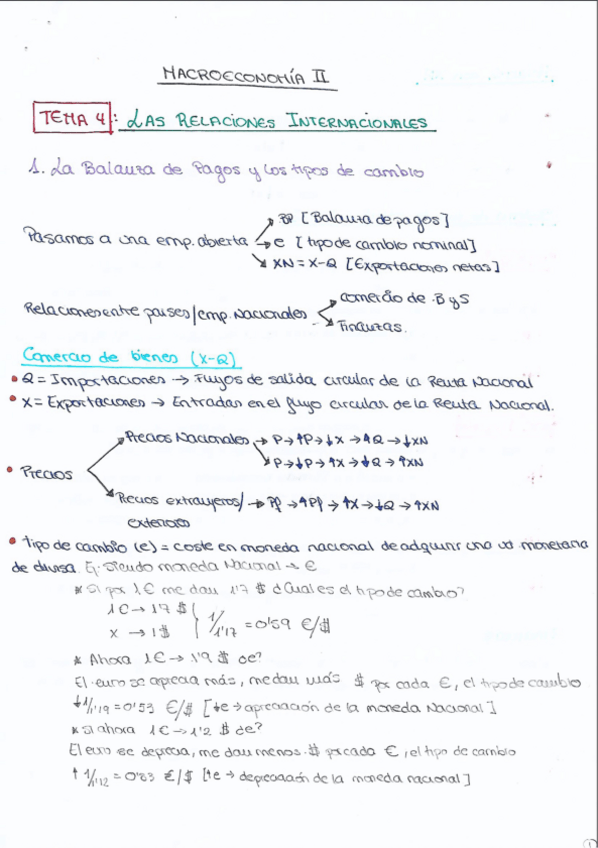 MACROECONOMÍA II
TEMA 4: LAS RELACIONES INTERNACIONALES
1. La Balanza de Pagos y los tipos de cambio
BP [Balanza de pagos]
Pasamos a una emp. abierta → e [tipo de cambio nominal]
XN = X-Q [Exportaciones netas]
comercio de B y S
Relaciones entre países/emp. Nacionales
Finanzas.
Comercio de bienes (X-Q)
• Q = Importaciones → Flujos de salida circular de la Renta Nacional
• X = Exportaciones → Entradas en el flujo circular de la Renta Nacional.
Precios Nacionales → P → ↑P → ↓X → ↑Q → ↓XN
P → ↓P → ↑X → ↓Q → ↑XN
• Precios
Precios extranjeros/ → Pf → ↑Pf → ↑X → ↓Q → ↑XN
exteriores
• Tipo de cambio (e) = coste en moneda nacional de adquirir una ud monetaria
de divisa. Ej: Siendo moneda Nacional → €
* Si por 1€ me dan 1'7 $ ¿Cual es el tipo de cambio?
1€ → 1'7 $
x → 1$ } 1/1'17 = 0'59 €/$
* Ahora 1€ → 1'9 $ ¿e?
El euro se aprecia más, me dan más $ por cada €, el tipo de cambio
↓ 1/1'19 = 0'53 €/$ [↓e → apreciación de la moneda Nacional]
* Si ahora 1€ → 1'2 $ ¿e?
El euro se deprecia, me dan menos $ por cada €, el tipo de cambio
↑ 1/1'12 = 0'83 €/$ [↑e → depreciación de la moneda nacional]
1